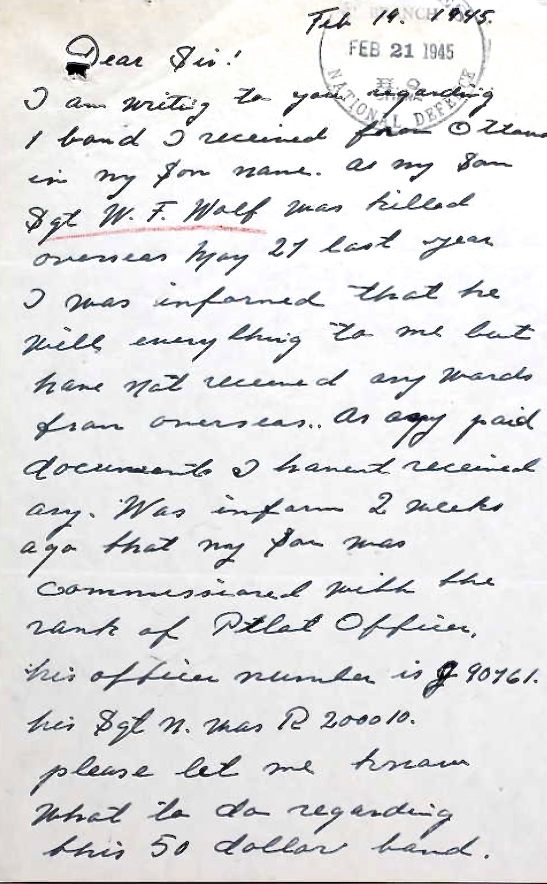 Feb 19. 1945.
BRANCH
FEB 21 1945
H Q
NATIONAL DEFENCE
Dear Sir!
I am writig to you regarding
1 bond I received from Ottawa
in my Son name. as my Son
Sgt W. F. Wolf was killed
overseas May 27 last year
I was informed that he
will everything to me but
have not received any words
from overseas.. As any paid
documents I havent received
any. Was inform 2 weeks
ago that my Son was
commissioned with the
rank of Pilot Officer.
his officer number is J 90761.
his Sgt N. was R 200010.
please let me know
what to do regarding
this 50 dollar bond.